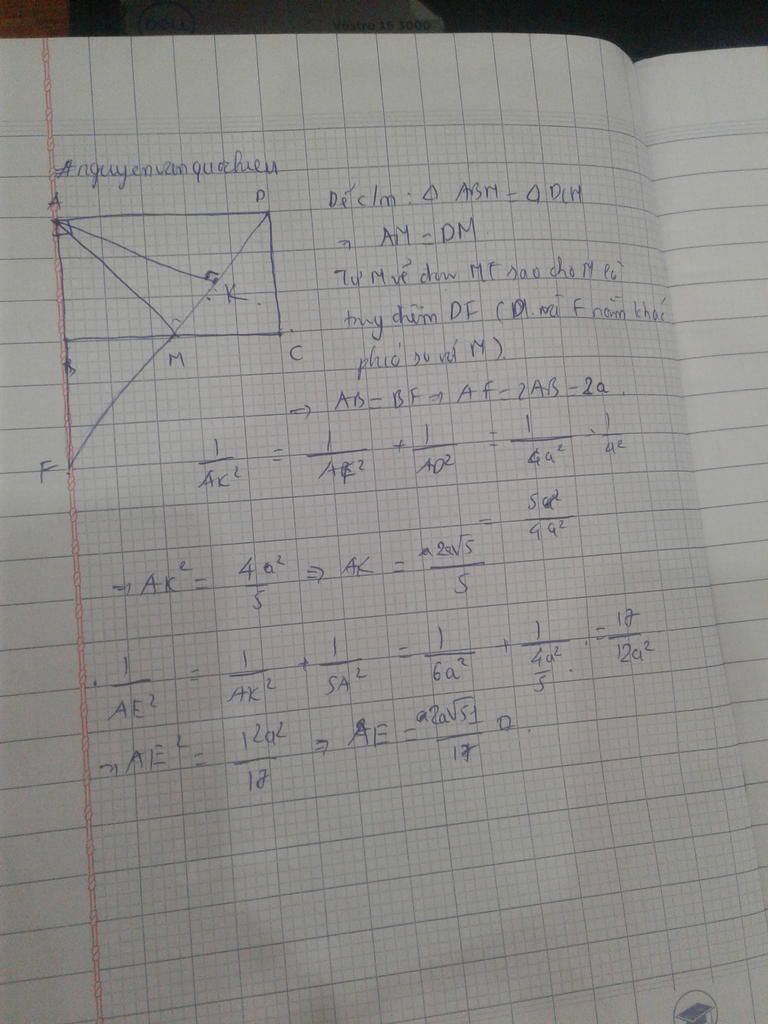 DELL
Vostro 15 3000
#nguyenvanquochieu
A D
K
B M C
F
Dễ c/m : Δ ABM = Δ DCM
⇒ AM = DM
Từ M vẽ MF sao cho M là
trung điểm DF (D và F nằm khác
phía so với M).
⇒ AB = BF ⇒ AF = 2AB = 2a.
1/AK² = 1/AF² + 1/AD² = 1/4a² + 1/a²
= 5a²/4a²
⇒ AK² = 4a²/5 ⇒ AK = 2a√5/5
. 1/AE² = 1/AK² + 1/SA² = 1/6a² + 1/(4a²/5) = 17/12a²
⇒ AE² = 12a²/17 ⇒ AE = 2a√51/17